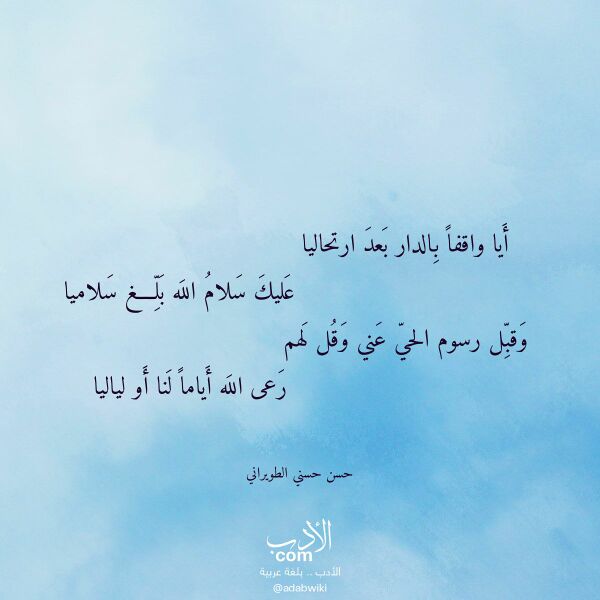 أَيا واقفاً بِالدار بَعدَ ارتحاليا
عَليكَ سَلامُ اللَه بَلِّــغ سَلاميا
وَقبِّل رسوم الحيّ عَني وَقُل لَهم
رَعى اللَه أَياماً لَنا أَو لياليا
حسن حسني الطويراني
الأدب
com
الأدب .. بلغة عربية
@adabwiki